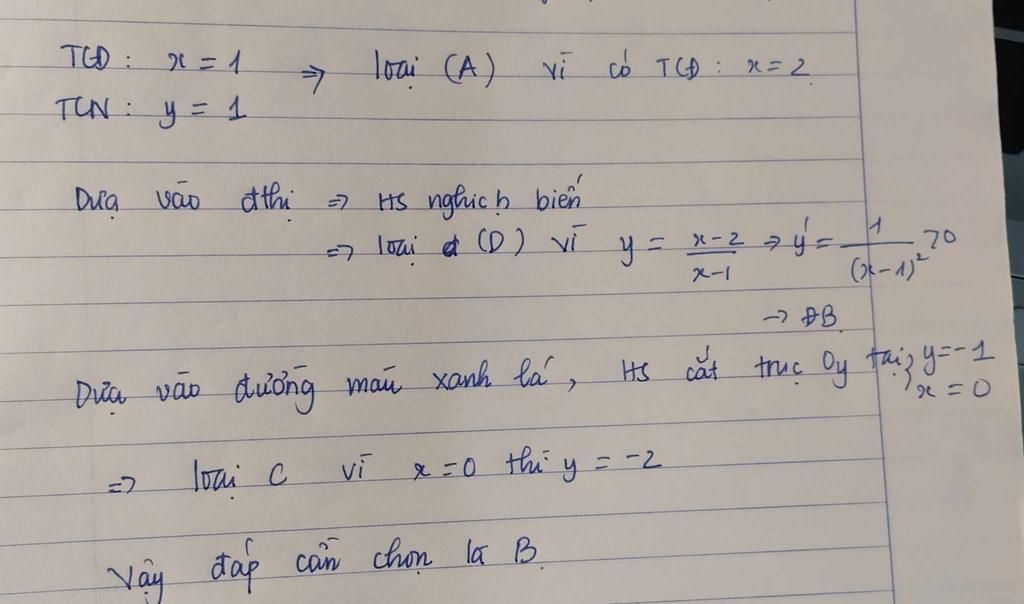 TCĐ: x = 1 ⇒ loại (A) vì có TCĐ: x = 2
TCN: y = 1
Dựa vào đthị ⇒ HS nghịch biến
⇒ loại (D) vì y = (x-2)/(x-1) ⇒ y' = 1/(x-1)² >0
→ ĐB
Dựa vào đường màu xanh lá, HS cắt trục Oy tại; y=-1
x = 0
⇒ loại C vì x = 0 thì y = -2
Vậy đáp cần chọn là B.